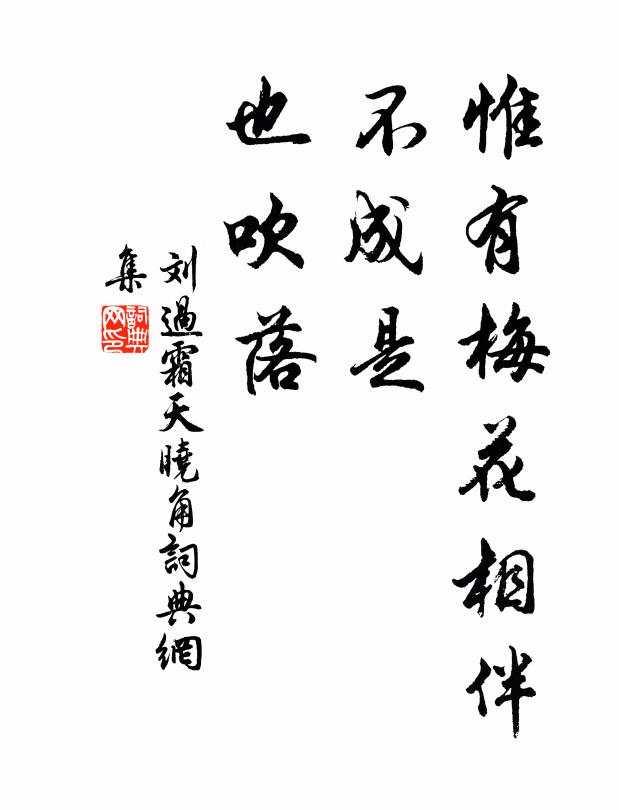 惟有梅花相伴
不成是
也吹落
刘過霜天曉角詞典網
集
詞典
网印